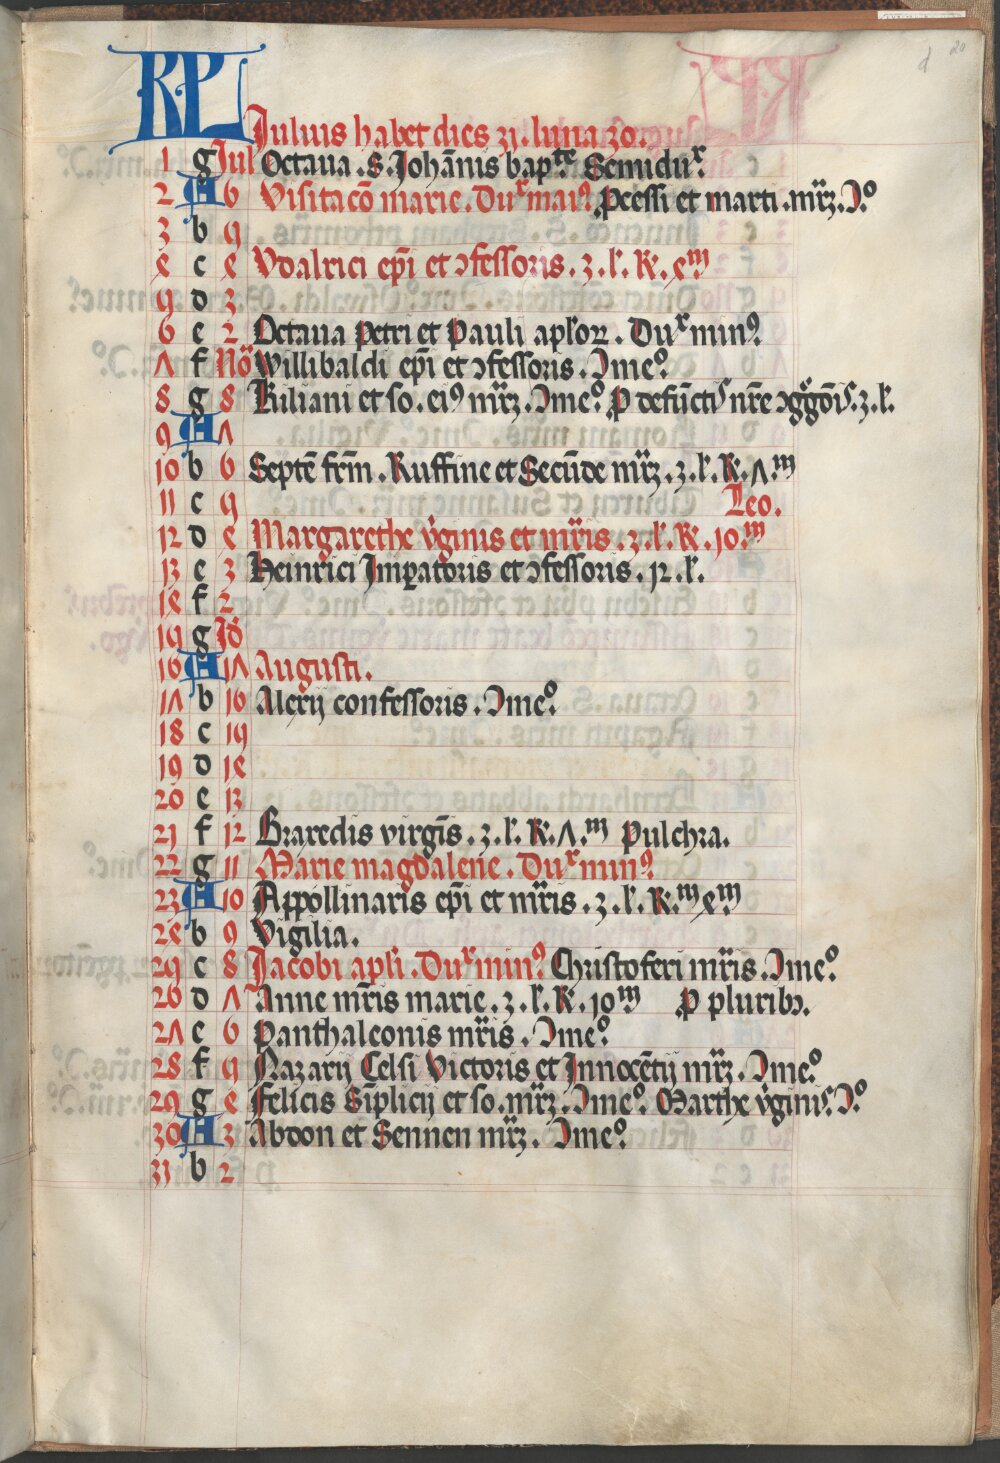 d 20
KL
Julius habet dies 31. luna 30.
1 g Jul Octaua . S. Johānis bapᵗᵉ Semiduˣ
2 A 6 Visitacō marie . Duˣ maiꝰ Pcessi et marti . mr̄ꝫ .Ɔ.°
3 b 5
4 c 4 Vdalrici ep̄i et ↄfessoris . 3 . l'. R'. 4ᵐ
5 d 3
6 e 2 Octaua Petri et Pauli apl'oꝝ . Duˣ minꝰ
7 f Nō Willibaldi ep̄i et ↄfessoris . Ɔmeº.
8 g 8 Kiliani et so. eiꝰ mr̄ꝫ . Ɔmeº. P defūctis nr̄e ↄg̊gōis . 3 . l'.
9 A 7
10 b 6 Septē fr̄m . Ruffine et Secūde mr̄ꝫ . 3 . l'. R'. 7.ᵐ
11 c 5 Leo.
12 d 4 Margarethe v̓ginis et mr̄is . 3 . l'. R'. 10.ᵐ
13 e 3 Heinrici Imꝑatoris et ↄfessoris . 12 . l'.
14 f 2
15 g Jd̄
16 A 17 Augusti.
17 b 16 Alexij confessoris . Ɔmeº.
18 c 15
19 d 14
20 e 13
21 f 12 Braxedis virgīs . 3 . l'. R'. 7.ᵐ Pulchra.
22 g 11 Marie magdalene . Duˣ minꝰ
23 A 10 Appollinaris ep̄i et mr̄is . 3 . l'. R'.ᵐ 4ᵐ
24 b 9 Vigilia.
25 c 8 Jacobi apl'i . Duˣ minꝰ Christoferi mr̄is . Ɔmeº.
26 d 7 Anne mr̄is marie . 3 . l'. R'. 10ᵐ P pluribꝫ.
27 e 6 Panthaleonis mr̄is . Ɔmeº.
28 f 5 Nazarij Celsi Victoris et Innocētij mr̄ꝫ . Ɔmeº.
29 g 4 Felicis Sīplicij et so . mr̄ꝫ . Ɔmeº. Marthe v̓ginis . Ɔ.°
30 A 3 Abdon et Sennen mr̄ꝫ . Ɔmeº.
31 b 2